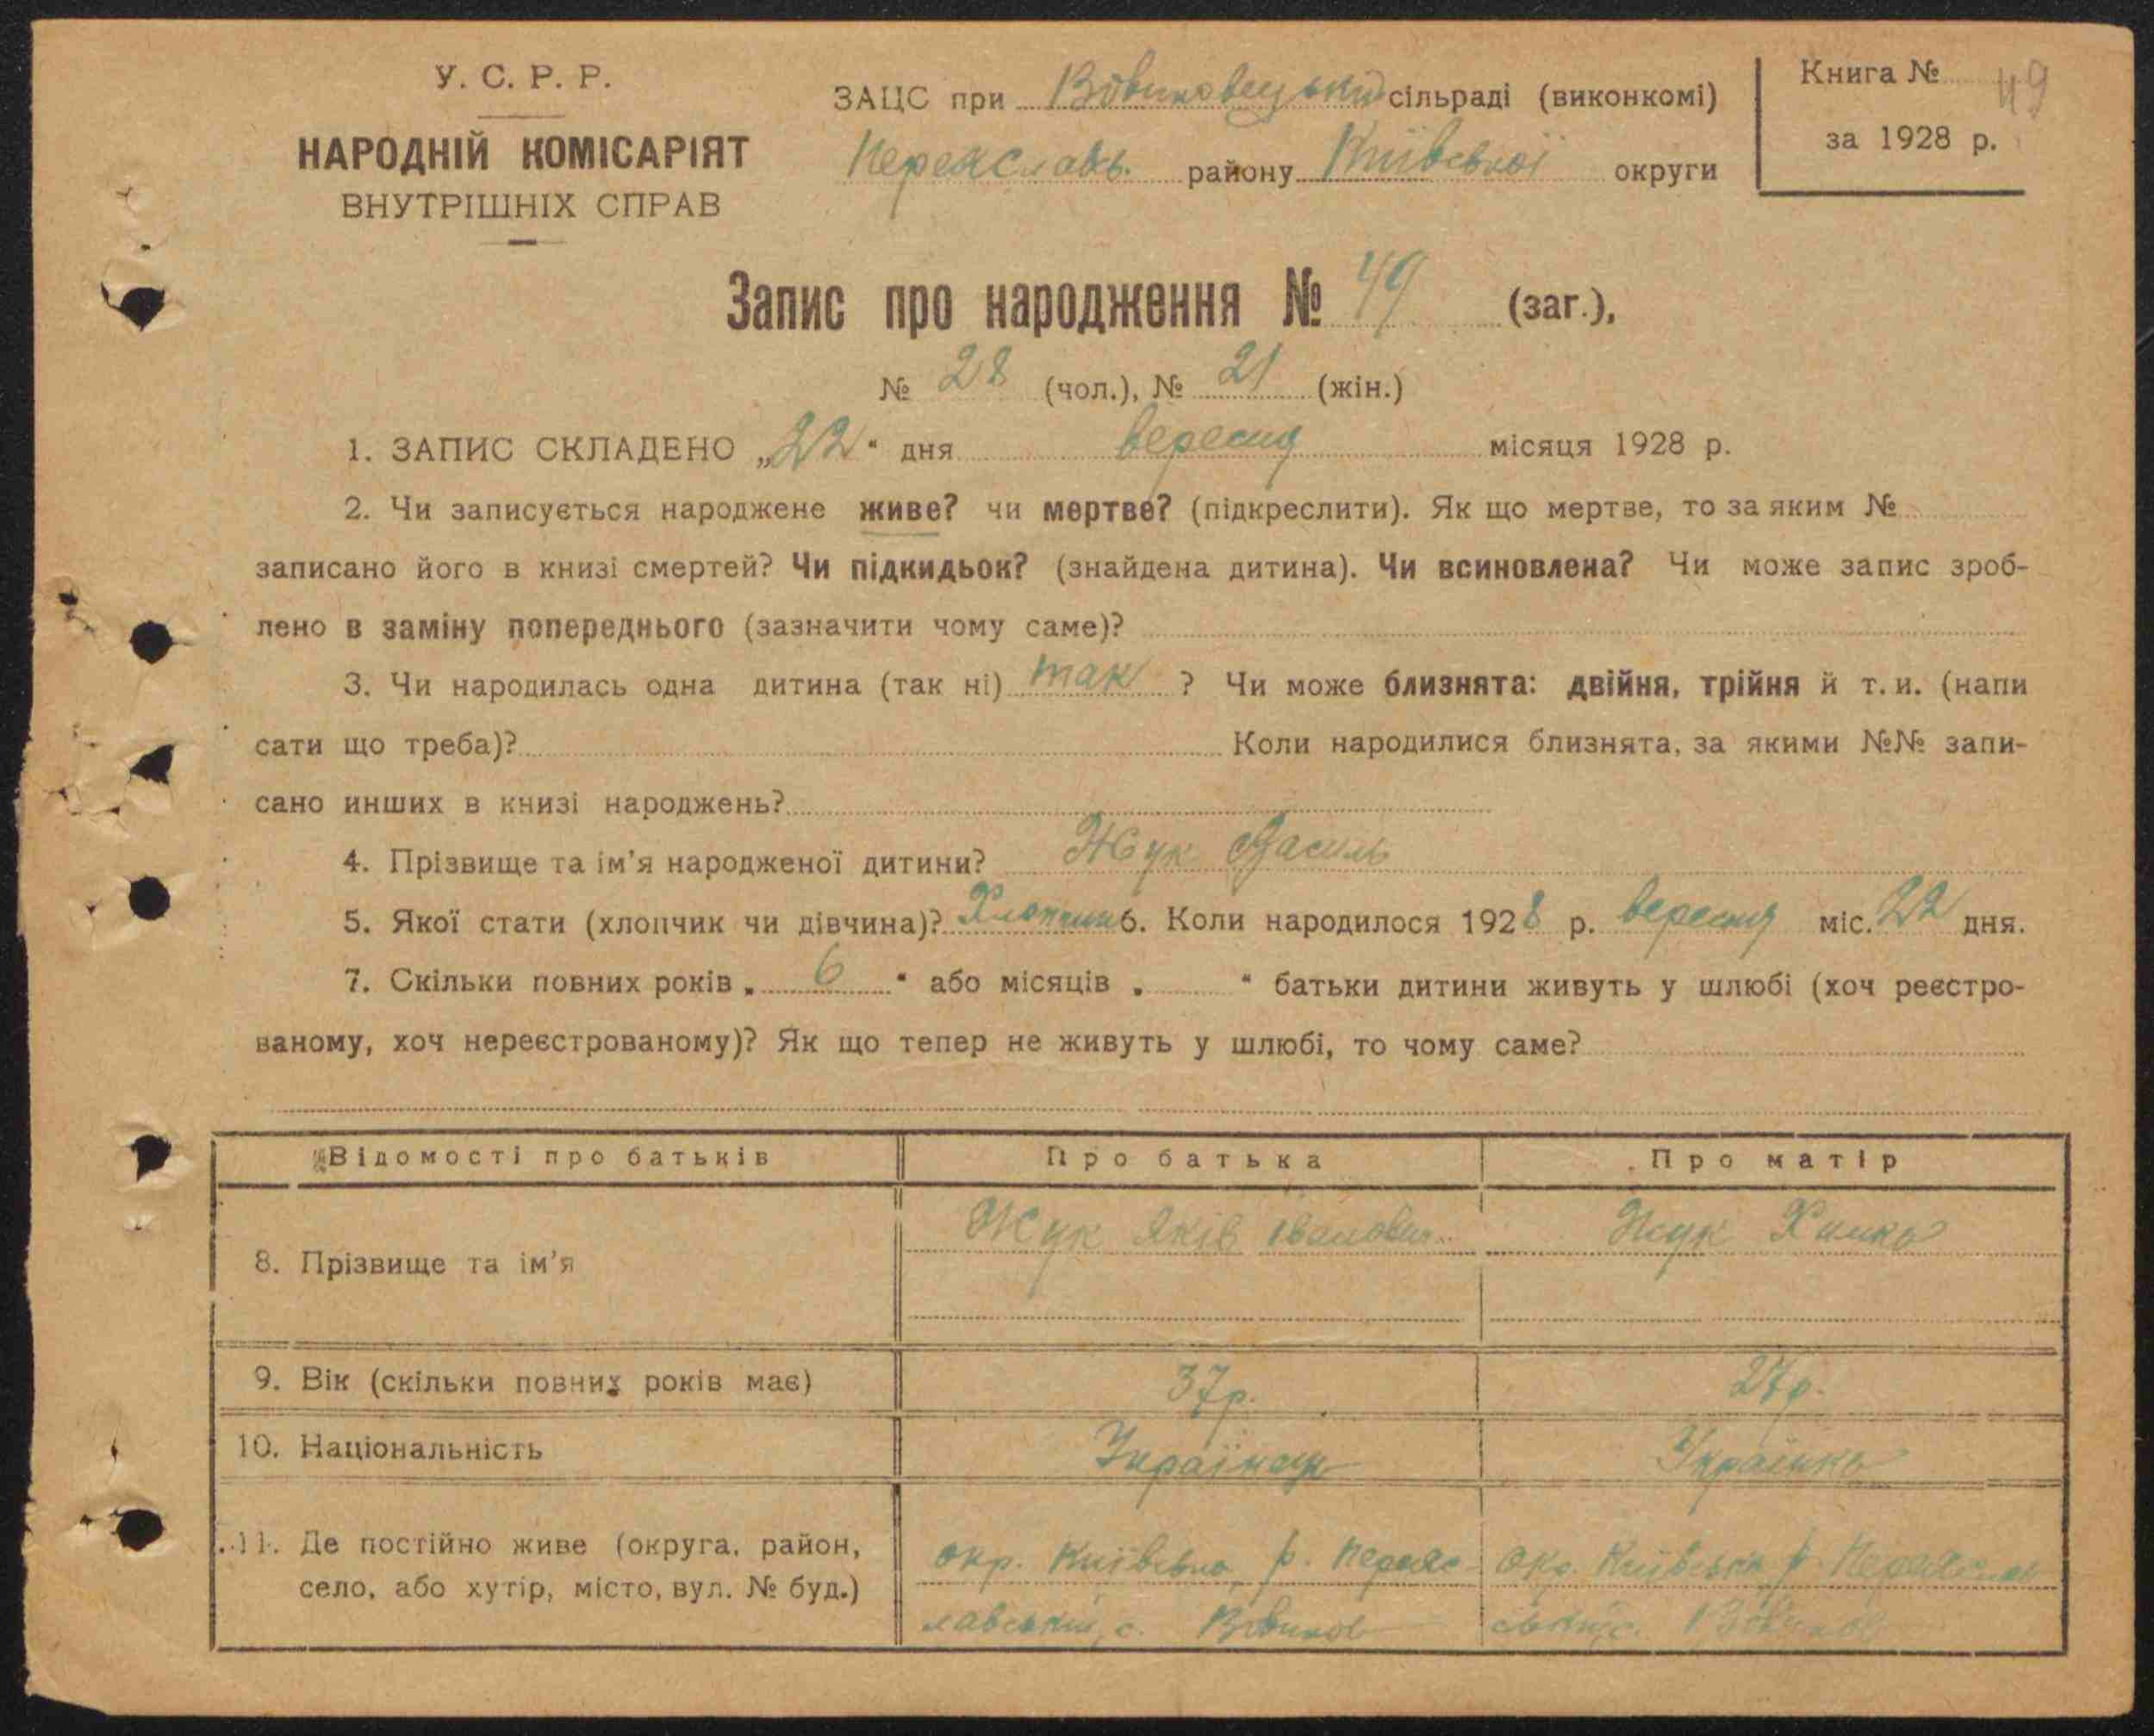 У. С. Р. Р.
НАРОДНІЙ КОМІСАРІЯТ
ВНУТРІШНІХ СПРАВ
ЗАЦС при сільраді (виконкомі)
Переяславь. району Київської округи
Книга № 49
за 1928 р.
Запис про народження № 49 (заг.),
№ 28 (чол.), № 21 (жін.)
1. ЗАПИС СКЛАДЕНО „22“ дня вересня місяця 1928 р.
2. Чи записується народжене живе? чи мертве? (підкреслити). Як що мертве, то за яким №
записано його в книзі смертей? Чи підкидьок? (знайдена дитина). Чи всиновлена? Чи може запис зроб-
лено в заміну попереднього (зазначити чому саме)?
3. Чи народилась одна дитина (так ні) так ? Чи може близнята: двійня, трійня й т. и. (напи
сати що треба)? Коли народилися близнята, за якими №№ запи-
сано инших в книзі народжень?
4. Прізвище та ім'я народженої дитини? Жук Василь
5. Якої стати (хлопчик чи дівчина)? Хлопчик 6. Коли народилося 1928 р. вересня міс. 22 дня.
7. Скільки повних років „ 6 “ або місяців „ “ батьки дитини живуть у шлюбі (хоч реєстро-
ваному, хоч нереєстрованому)? Як що тепер не живуть у шлюбі, то чому саме?
Відомості про батьків Про батька Про матір
8. Прізвище та ім'я Жук Яків Іванович Жук
9. Вік (скільки повних років має) 37р. 27р.
10. Національність Українець Українка
11. Де постійно живе (округа, район, село, або хутір, місто, вул. № буд.)
окр. Київська р. Переяс-
лавський, с.
окр. Київська р. Переяслав
ський с.